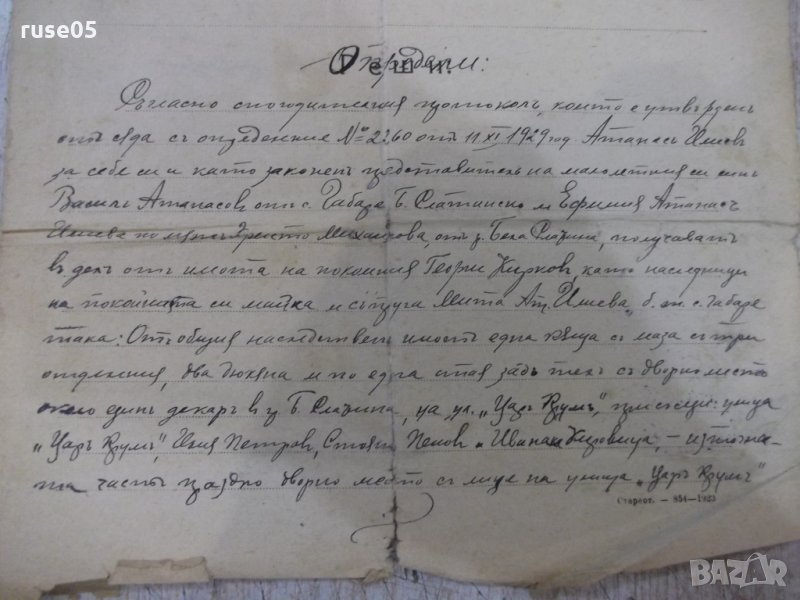 ruse05
Определи:
Съгласно спогодителния протоколъ, който е утвърденъ
отъ сѫда съ определение № 2260 отъ 11 XI 1929 год. Атанасъ Илиевъ
за себе си и като законенъ представителъ на малолетния си синъ
Василъ Атанасовъ отъ с. Габаре Б. Слатинско и Ефимия Атанасъ
Илиева по мѫжъ Христо Михайлова, отъ гр. Бела Слатина, получаватъ
въ делъ отъ имота на покойния Георги Кирковъ, като наследници
на покойната си майка и съпруга Мита Ат. Илиева, б. ж. с. Габаре
така: Отъ общия наследственъ имотъ една кѫща съ маза съ три
отделения, два дюкяна и по една стая задъ техъ съ дворно место
около единъ декаръ въ гр. Б. Слатина, на ул. „Царь Крумъ", при съседи: улица
„Царь Крумъ", Илия Петровъ, Стоянъ Пеновъ и Иванъ Кировица, – източна-
та часть праздно дворно место съ лице на улица „Царь Крумъ"
Стереот. — 854—1923
BAZAR